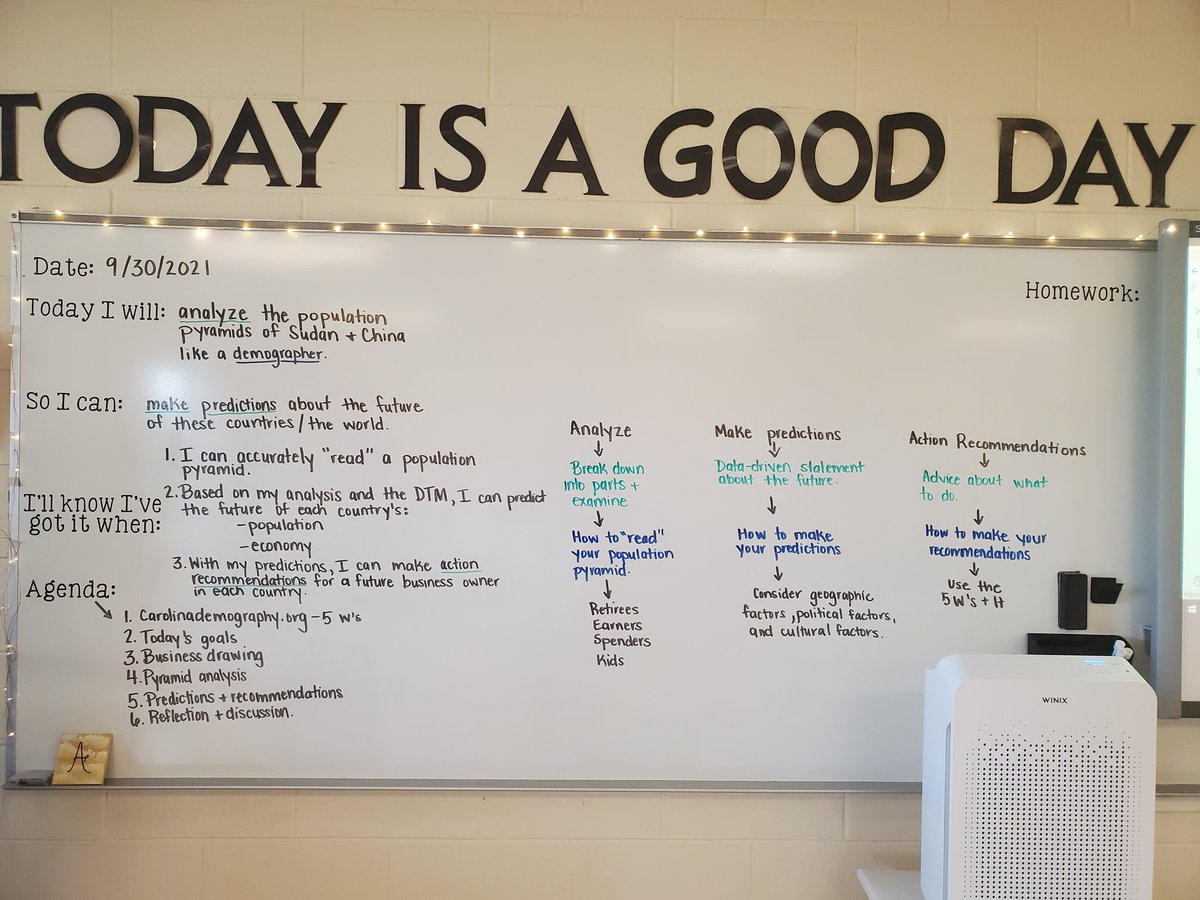 TODAY IS A GOOD DAY
Date: 9/30/2021
Homework:
Today I will: analyze the population
pyramids of Sudan + China
like a demographer.
So I can: make predictions about the future
of these countries/the world.
I'll know I've
got it when:
1. I can accurately "read" a population
pyramid.
2. Based on my analysis and the DTM, I can predict
the future of each country's:
-population
-economy
3. With my predictions, I can make action
recommendations for a future business owner
in each country.
Agenda:
1. Carolinademography.org - 5 W's
2. Today's goals
3. Business drawing
4. Pyramid analysis
5. Predictions + recommendations
6. Reflection + discussion.
Analyze
Break down
into parts +
examine
How to "read"
your population
pyramid.
Retirees
Earners
Spenders
Kids
Make predictions
Data-driven statement
about the future.
How to make
your predictions
Consider geographic
factors, political factors,
and cultural factors.
Action Recommendations
Advice about what
to do.
How to make your
recommendations
Use the
5 W's + H
A
WINIX